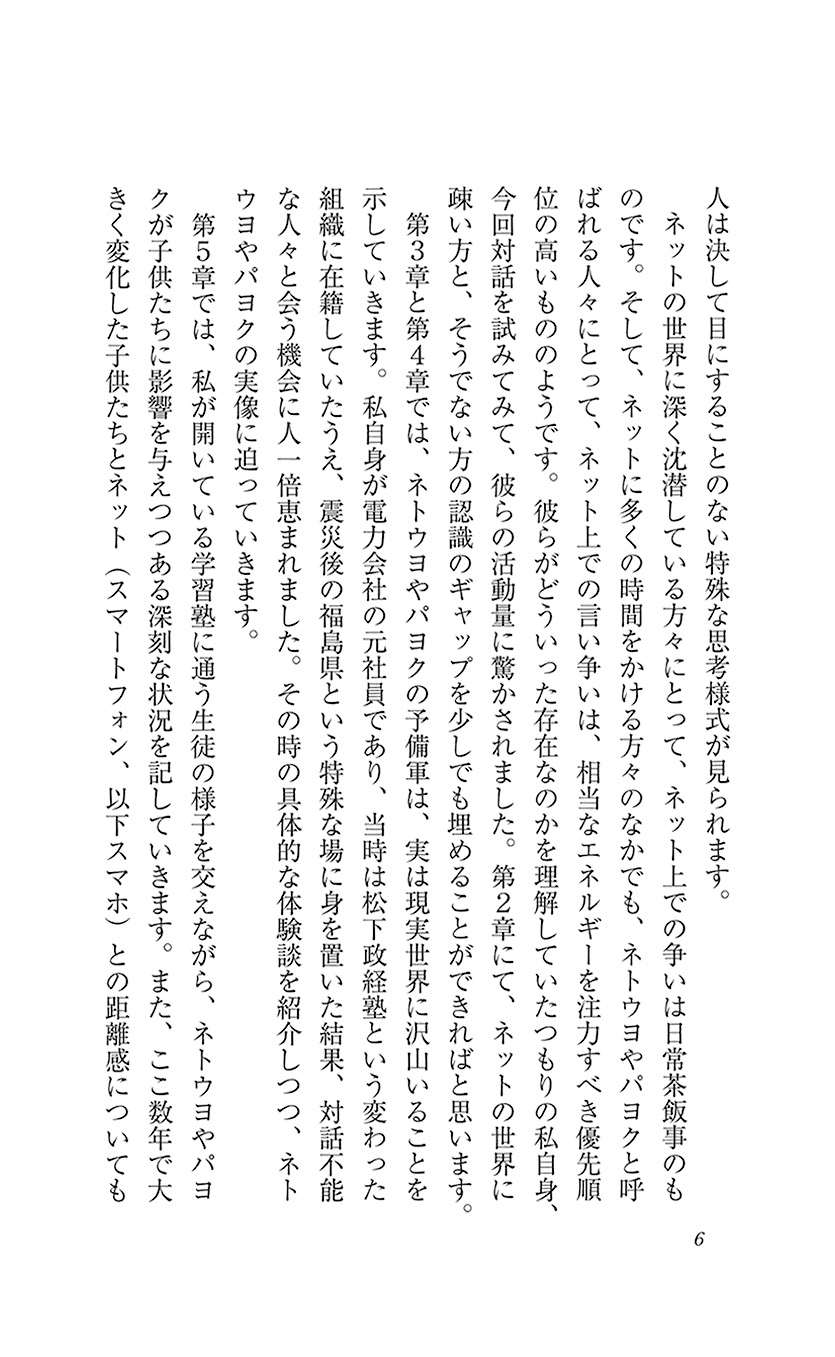 人は決して目にすることのない特殊な思考様式が見られます。
ネットの世界に深く沈潜している方々にとって、ネット上での争いは日常茶飯事のも
のです。そして、ネットに多くの時間をかける方々のなかでも、ネトウヨやパヨクと呼
ばれる人々にとって、ネット上での言い争いは、相当なエネルギーを注力すべき優先順
位の高いもののようです。彼らがどういった存在なのかを理解していたつもりの私自身、
今回対話を試みてみて、彼らの活動量に驚かされました。第2章にて、ネットの世界に
疎い方と、そうでない方の認識のギャップを少しでも埋めることができればと思います。
第3章と第4章では、ネトウヨやパヨクの予備軍は、実は現実世界に沢山いることを
示していきます。私自身が電力会社の元社員であり、当時は松下政経塾という変わった
組織に在籍していたうえ、震災後の福島県という特殊な場に身を置いた結果、対話不能
な人々と会う機会に人一倍恵まれました。その時の具体的な体験談を紹介しつつ、ネト
ウヨやパヨクの実像に迫っていきます。
第5章では、私が開いている学習塾に通う生徒の様子を交えながら、ネトウヨやパヨ
クが子供たちに影響を与えつつある深刻な状況を記していきます。また、ここ数年で大
きく変化した子供たちとネット（スマートフォン、以下スマホ）との距離感についても
6